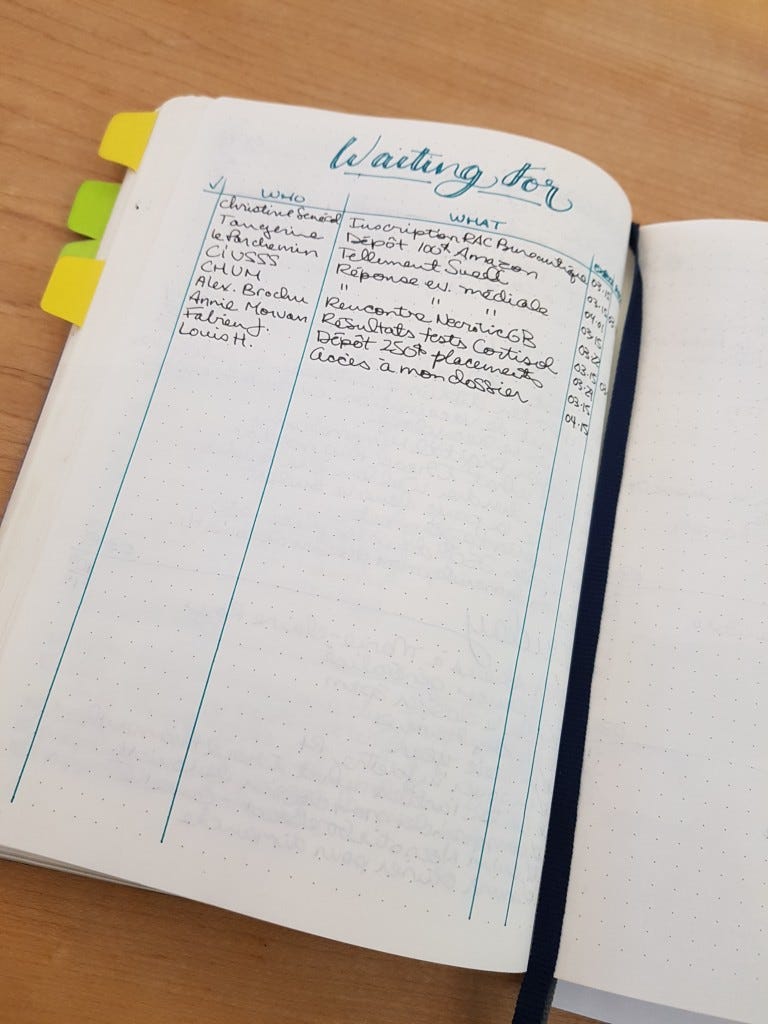 Waiting For
✓ WHO WHAT
Christine Senécal Inscription RAC Bureautique 03.15
Tangerine Dépôt 100$ Amazon 03.15
Le Parchemin Tellement Swell 04.01
CIUSSS Réponse ev. médicale 03.15
CHUM " " " 03.22
Alex. Brochu Rencontre NecrolicGB 03.15
Annie Morvan Résultats tests Cortisol 03.29
Fabien J. Dépôt 250$ placements 03.15
Louis H. Accès à mon dossier 04.15